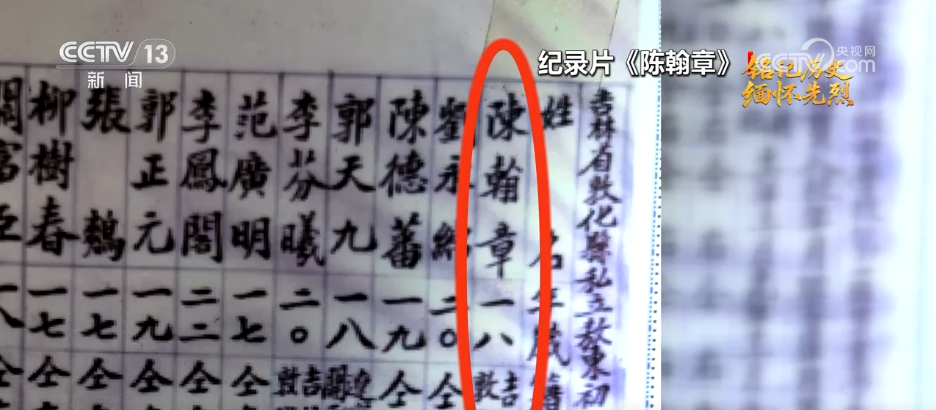 CCTV 13
新闻
纪录片《陈翰章》
央视网
CCTV.com
铭记历史
缅怀先烈
吉林省敦化縣私立敖東初
姓名 年歲 籍
陳翰章 一八 吉敦
劉永綿 二〇 仝
陳德蕃 一九 仝
郭天九 一八
李芬曦 二〇 吉敦
范廣明 一七 仝
李鳳閣 二二 仝
郭正元 一九 仝
張鵝 一七 仝
柳樹春 一七 仝
一八 仝